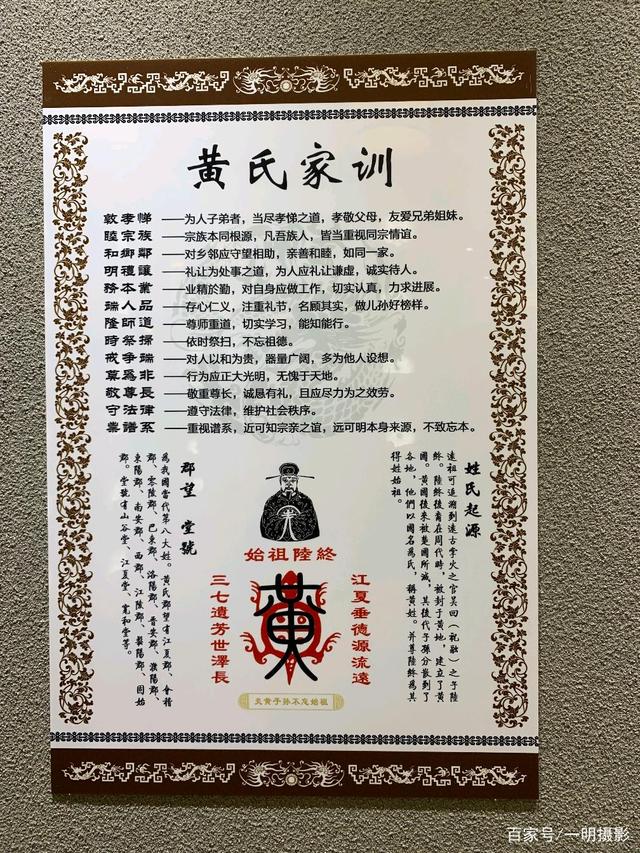 黄氏家训
敦孝悌 ——为人子弟者，当尽孝悌之道，孝敬父母，友爱兄弟姐妹。
睦宗族 ——宗族本同根源，凡吾族人，皆当重视同宗情谊。
和鄉鄰 ——对乡邻应守望相助，亲善和睦，如同一家。
明禮讓 ——礼让为处事之道，为人应礼让谦虚，诚实待人。
務本業 ——业精於勤，对自身应做工作，切实认真，力求进展。
端人品 ——存心仁义，注重礼节，名顾其实，做儿孙好榜样。
隆師道 ——尊师重道，切实学习，能知能行。
時祭掃 ——依时祭扫，不忘祖德。
戒争端 ——对人以和为贵，器量广阔，多为他人设想。
草爲非 ——行为应正大光明，无愧于天地。
敬尊長 ——敬重尊长，诚恳有礼，且应尽力为之效劳。
守法律 ——遵守法律，维护社会秩序。
棗譜系 ——重视谱系，近可知宗亲之谊，远可明本身来源，不致忘本。
姓氏起源
遠祖可追溯到遠古季火之官吴回（祝融）之子陸
終。陸終後裔在周代時，被封于黄地，建立了黄
國。黄國後来被楚國所滅，其後代子孫分散到了
各地，他們以國名爲氏，稱黄姓。并尊陸終爲其
得姓始祖。
郡望 堂號
爲我國當代第八大姓。黄氏郡望有江夏郡、會稽
郡、零陵郡、巴東郡、洛陽郡、晋安郡、濮陽郡、
東陽郡、南安郡、西郡、江陵郡、襄陽郡、固始
郡。堂號有山谷堂、江夏堂、寬和堂等。
始祖陸終
江夏垂德源流遠
三七遺芳世澤長
黄
炎黄子孙不忘始祖
百家号/一明摄影